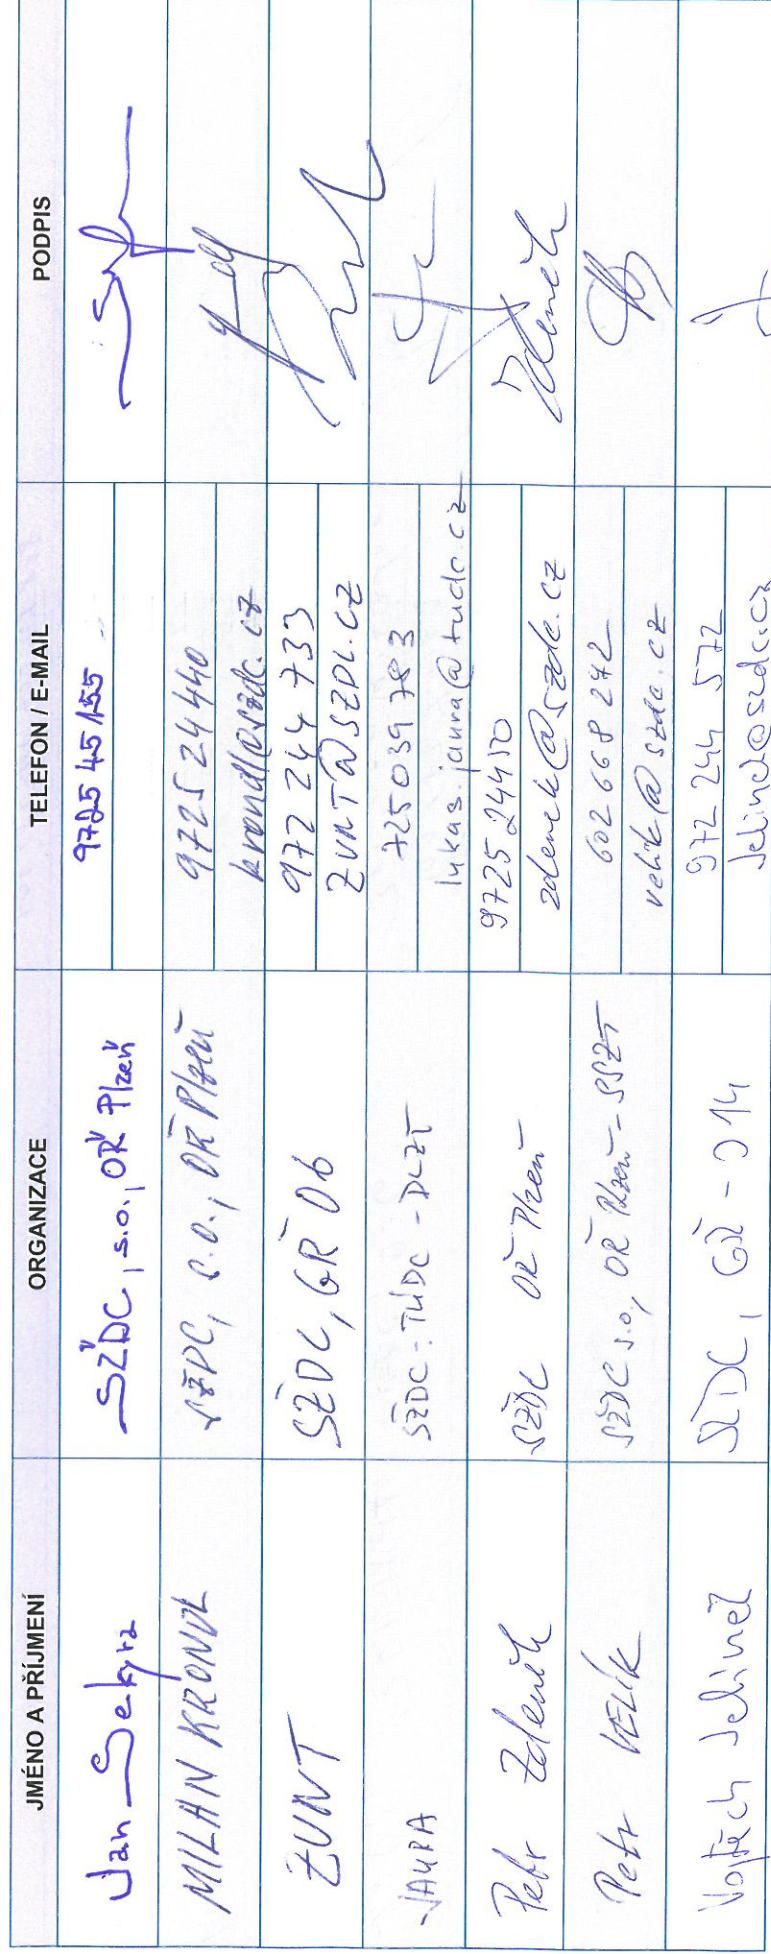 JMÉNO A PŘÍJMENÍ ORGANIZACE TELEFON / E-MAIL PODPIS
Jan Sekyra SŽDC, s.o., OŘ Plzeň 972545155
MILAN KRONDL SŽDC, s.o., OŘ Plzeň 972524440
krondl@szdc.cz
ŽUNT SŽDC, GŘ O6 972 244 733
ZUNT@SZDC.CZ
JAURA SŽDC-TÚDC-DLZT 725039783
lukas.jaura@tudc.cz
Petr Zdeněk SŽDC OŘ Plzeň 972524410
zdenek@szdc.cz
Petr VELÍK SŽDC s.o., OŘ Plzeň-SSZT 602668242
velik@szdc.cz
Vojtěch Jelínek SŽDC, GŘ-O14 972 244 572
Jelinek@szdc.cz